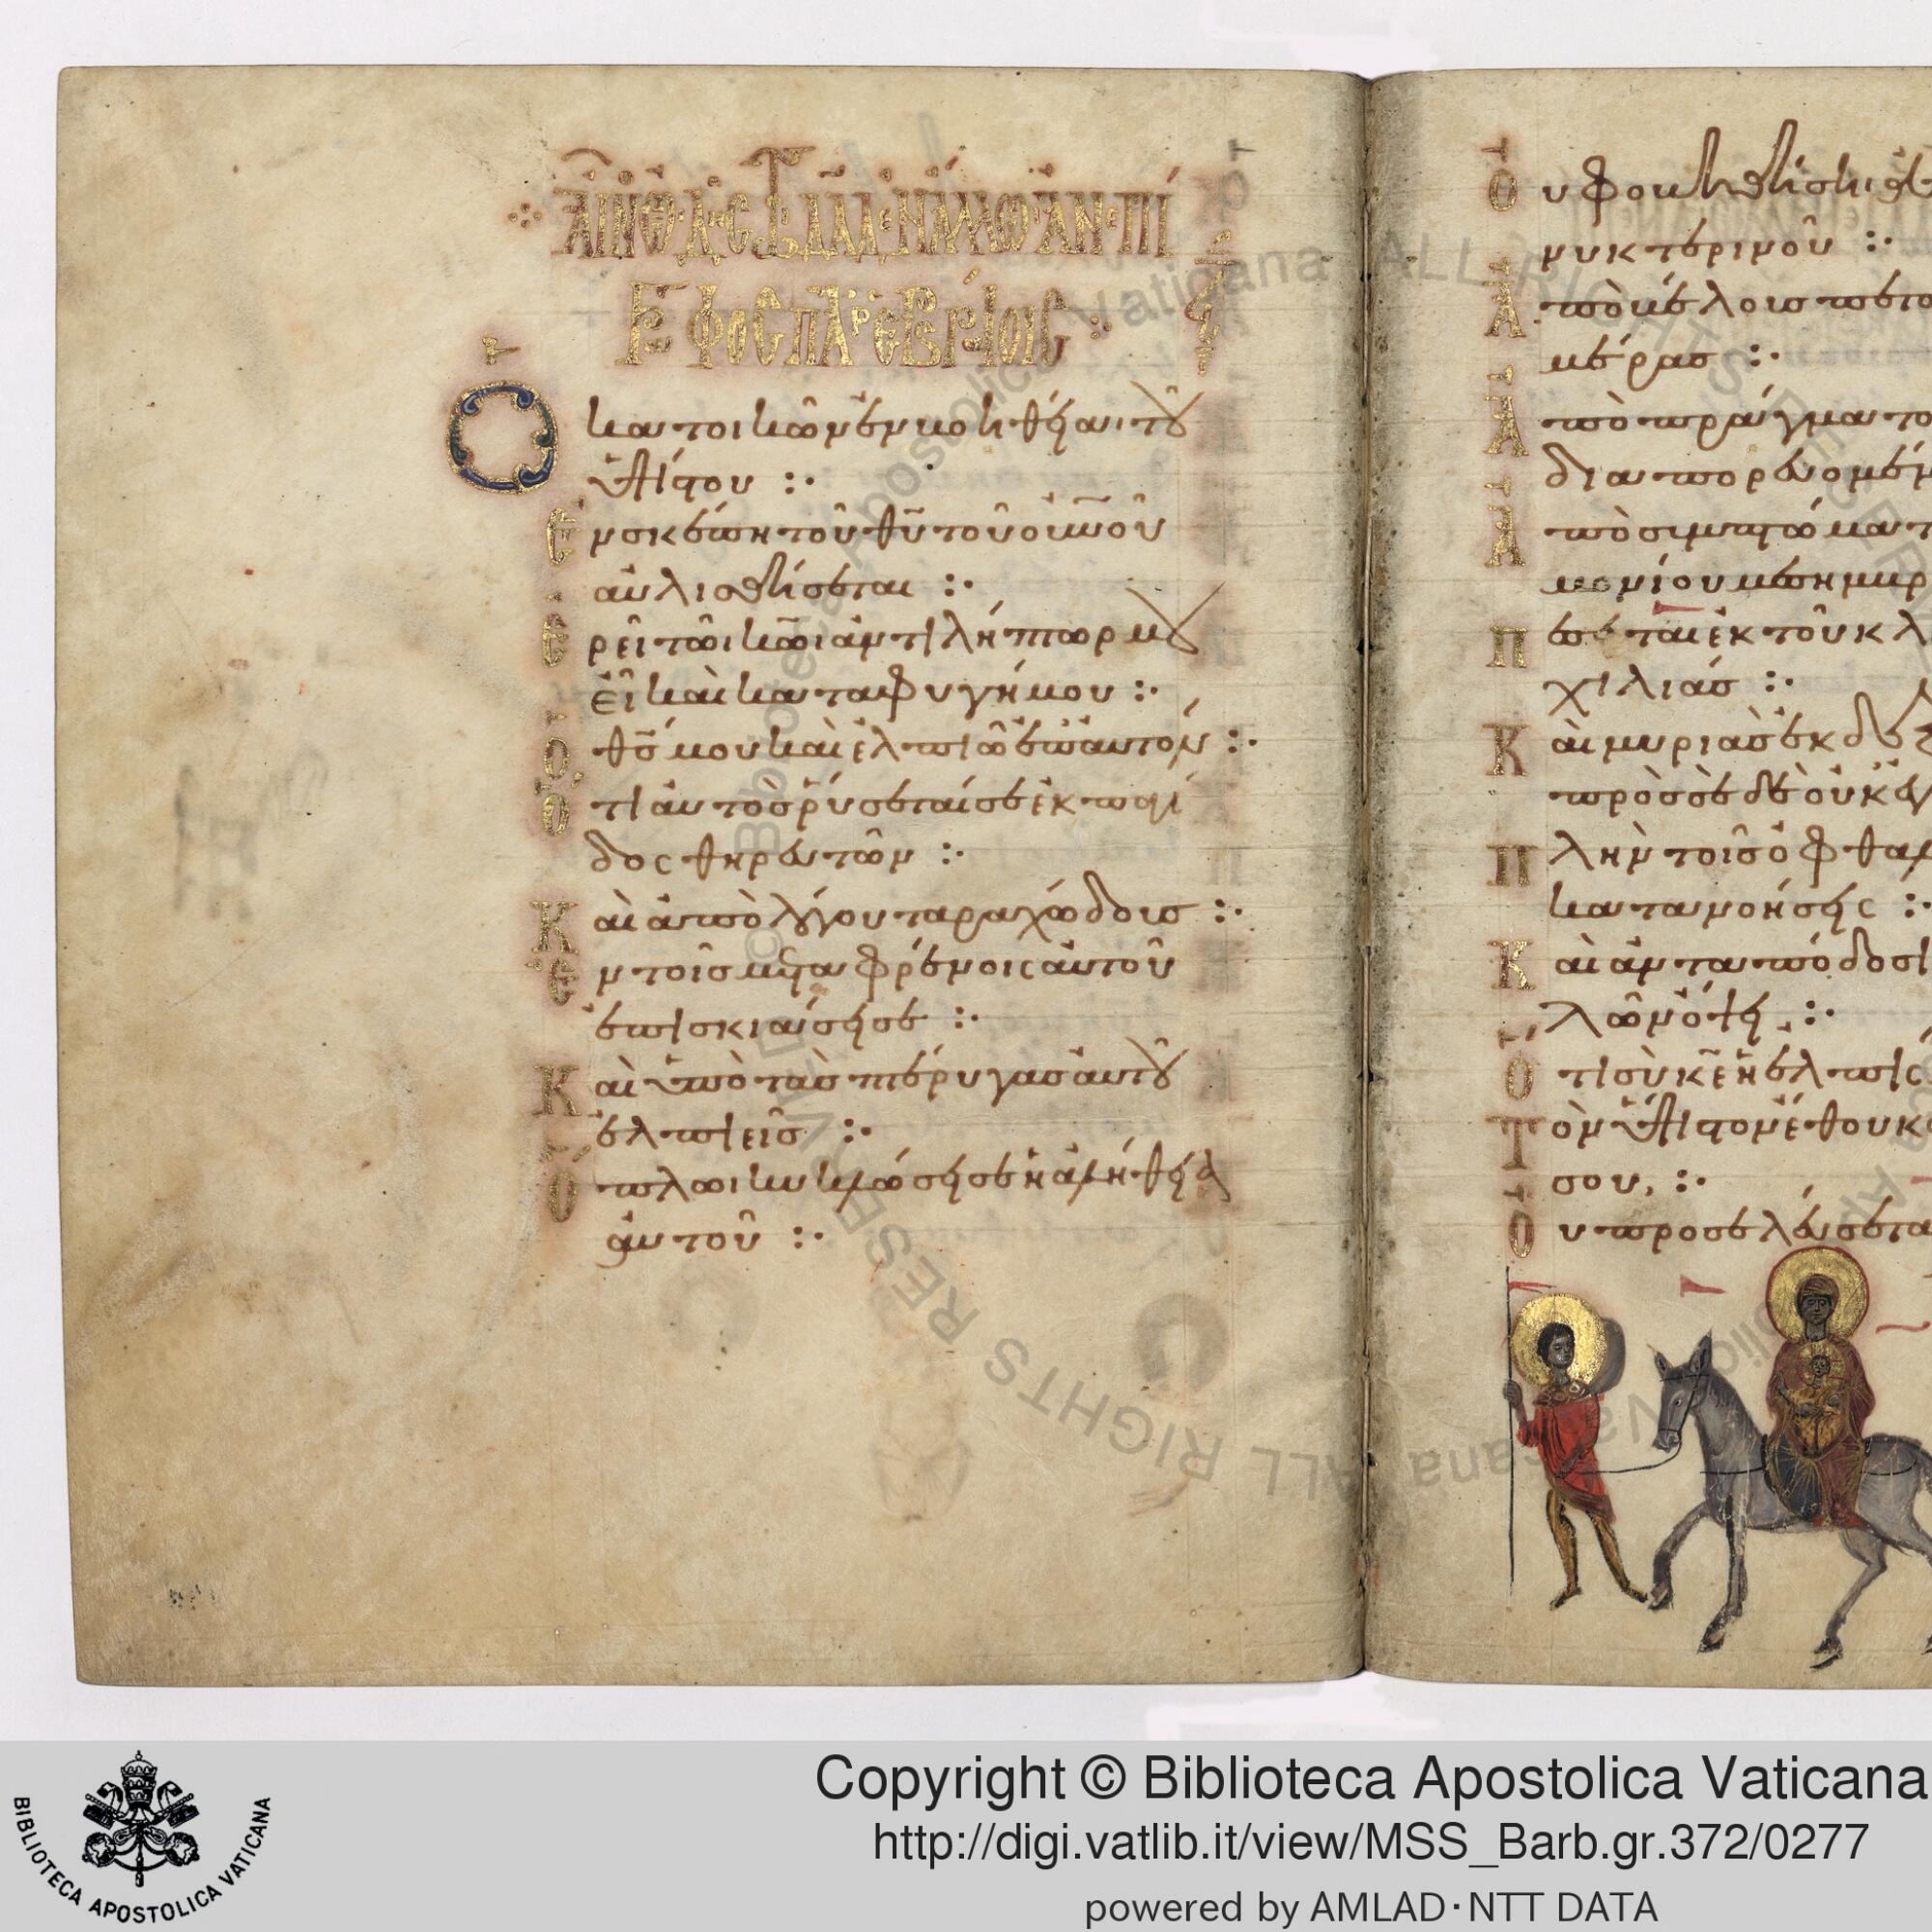 ΑΙΝΟΣ ΩΔΗΣ ΤΩ ΔΑΔ ΑΝΕΠΙ
ΓΡΑΦΟΣ ΠΑΡ ΕΒΡΑΙΟΙΣ
Ὁ κατοικῶν ἐν βοηθείᾳ τοῦ
ὑψίστου :·
Ἐν σκέπῃ τοῦ θυ τοῦ οὐνοῦ
αὐλισθήσεται :·
Ἐρεῖ τῶι κωι ἀντιλήπτωρ μου
εἶ καὶ καταφυγή μου :·
Ὁ θς μου καὶ ἐλπιῶ ἐπ αὐτόν :·
Ὅτι αὐτὸς ῥύσεταί σε ἐκ παγί
δος θηρευτῶν :·
Καὶ ἀπὸ λόγου ταραχώδους :·
Ἐν τοῖς μεταφρένοις αὐτοῦ
ἐπισκιάσει σε :·
Καὶ ὑπὸ τὰς πτέρυγας αὐτοῦ
ἐλπιεῖς :·
Ὅπλωι κυκλώσει σε ἡ ἀλήθεια
αὐτοῦ :·
Οὐ φοβηθήσῃ ἀ
μυκτερινοῦ :·
Ἀπὸ βέλους πετο
μέρας :·
Ἀπὸ πράγματο
διαπορευομέν
Ἀπὸ συμπτώματ
μονίου μεσημβρ
Πεσεῖται ἐκ τοῦ κλ
χιλιάς :·
Καὶ μυριὰς ἐκ δε
πρὸς σὲ δὲ οὐκ ἐγ
Πλὴν τοῖς ὀφθαλ
κατανοήσεις :·
Καὶ ἀνταπόδοσι
λῶν ὄψει :·
Ὅτι σὺ κε ἡ ἐλπίς
Τὸν ὕψιστον ἔθου κα
σου :·
Οὐ προσελεύσετα
Copyright © Biblioteca Apostolica Vaticana
http://digi.vatlib.it/view/MSS_Barb.gr.372/0277
powered by AMLAD·NTT DATA
BIBLIOTECA APOSTOLICA VATICANA